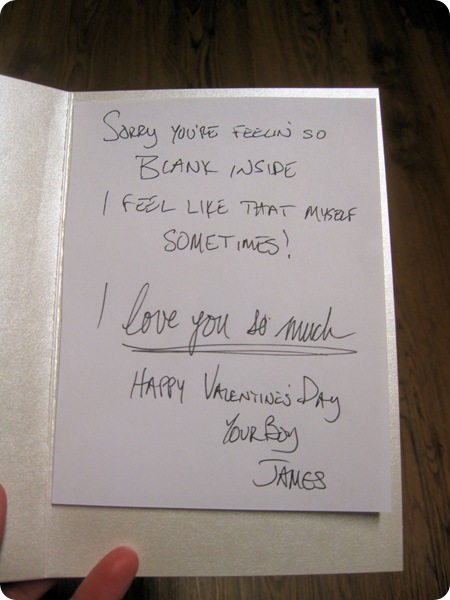 SORRY YOU'RE FEELIN' SO
BLANK INSIDE
I FEEL LIKE THAT MYSELF
SOMETIMES!
I love you so much
HAPPY VALENTINE'S DAY
YOUR BOY
JAMES